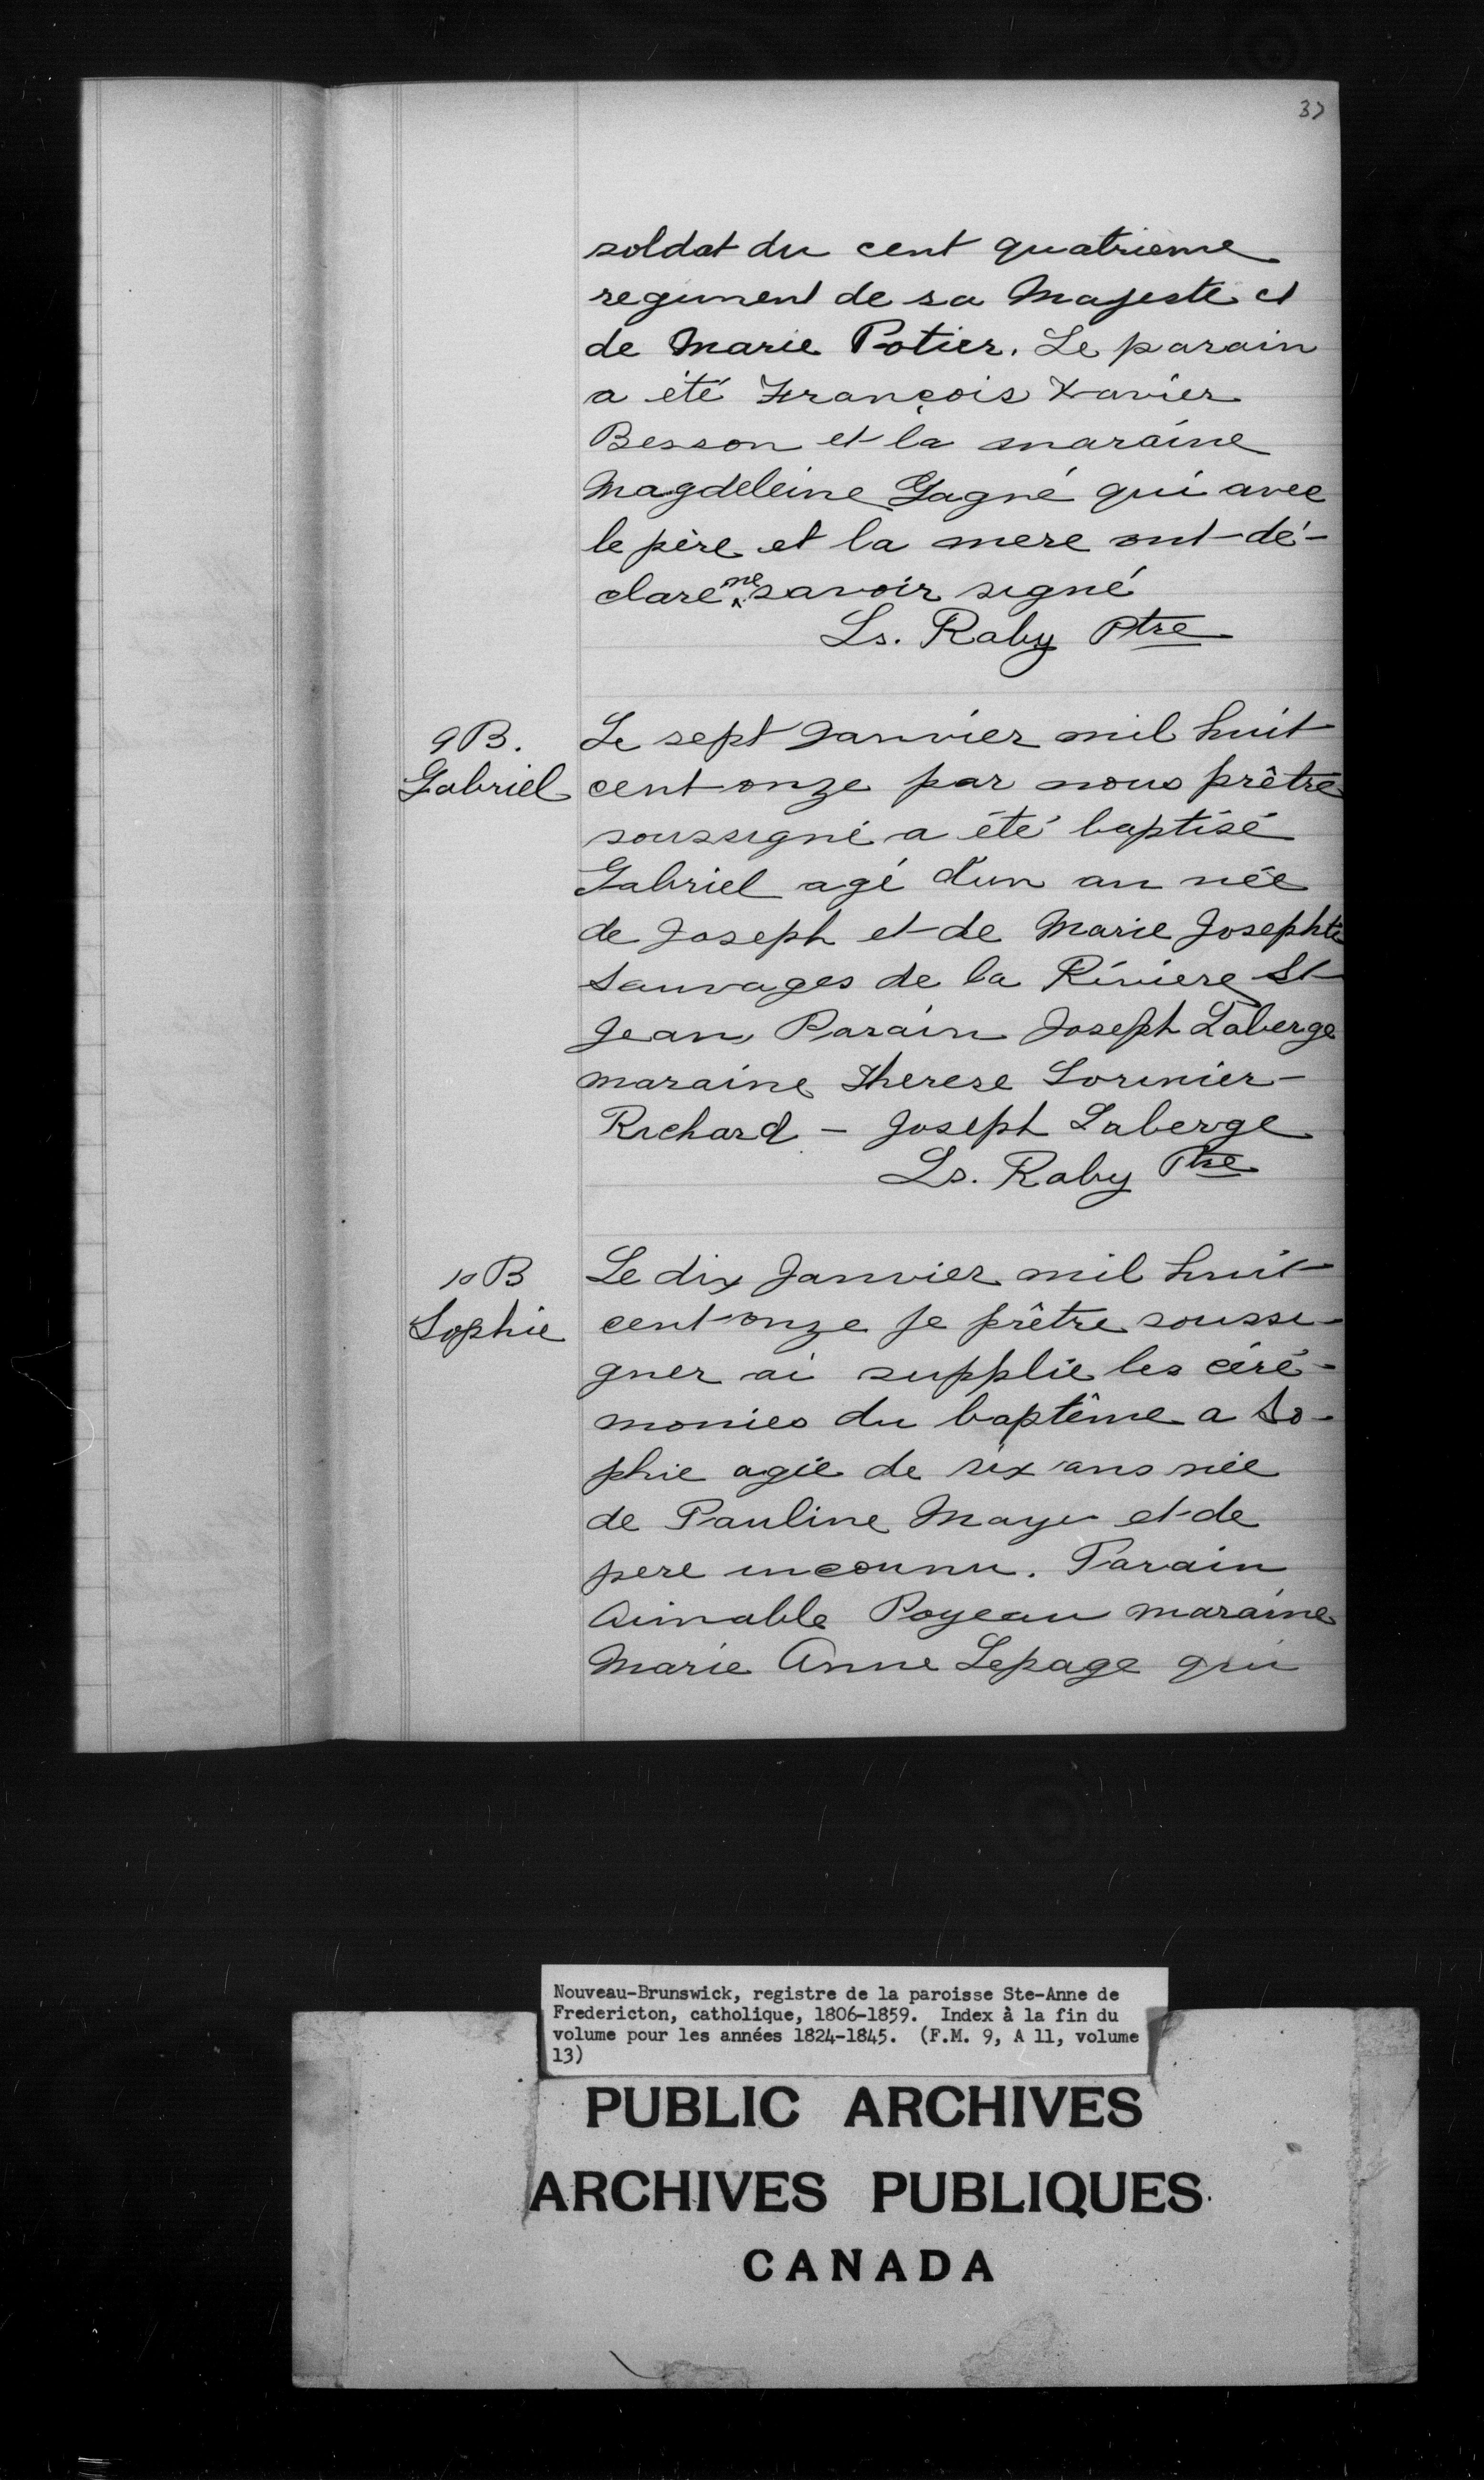 37
soldat du cent quatrieme
regiment de sa Majeste et
de Marie Potier. Le parain
a été François Xavier
Besson et la maraine
Magdeleine Gagné qui avec
le père et la mere ont dé-
claré ne savoir signé
Ls. Raby Ptre
9B.
Gabriel
Le sept Janvier mil huit
cent onze par nous prêtre
soussigné a été baptisé
Gabriel agé d'un an née
de Joseph et de Marie Josephte
Sauvages de la Riviere St
Jean, Parain Joseph Laberge
maraine Therese Lorinier-
Richard - Joseph Laberge
Ls. Raby Ptre
10B
Sophie
Le dix Janvier mil huit
cent onze je prêtre soussi-
gner ai supplie les céré-
monies du baptême a So-
phie agée de six ans née
de Pauline et de
pere inconnu. Parain
Aimable Poyeau maraine
Marie Anne Lepage qui
Nouveau-Brunswick, registre de la paroisse Ste-Anne de
Fredericton, catholique, 1806-1859. Index à la fin du
volume pour les années 1824-1845. (F.M. 9, A 11, volume
13)
PUBLIC ARCHIVES
ARCHIVES PUBLIQUES
CANADA